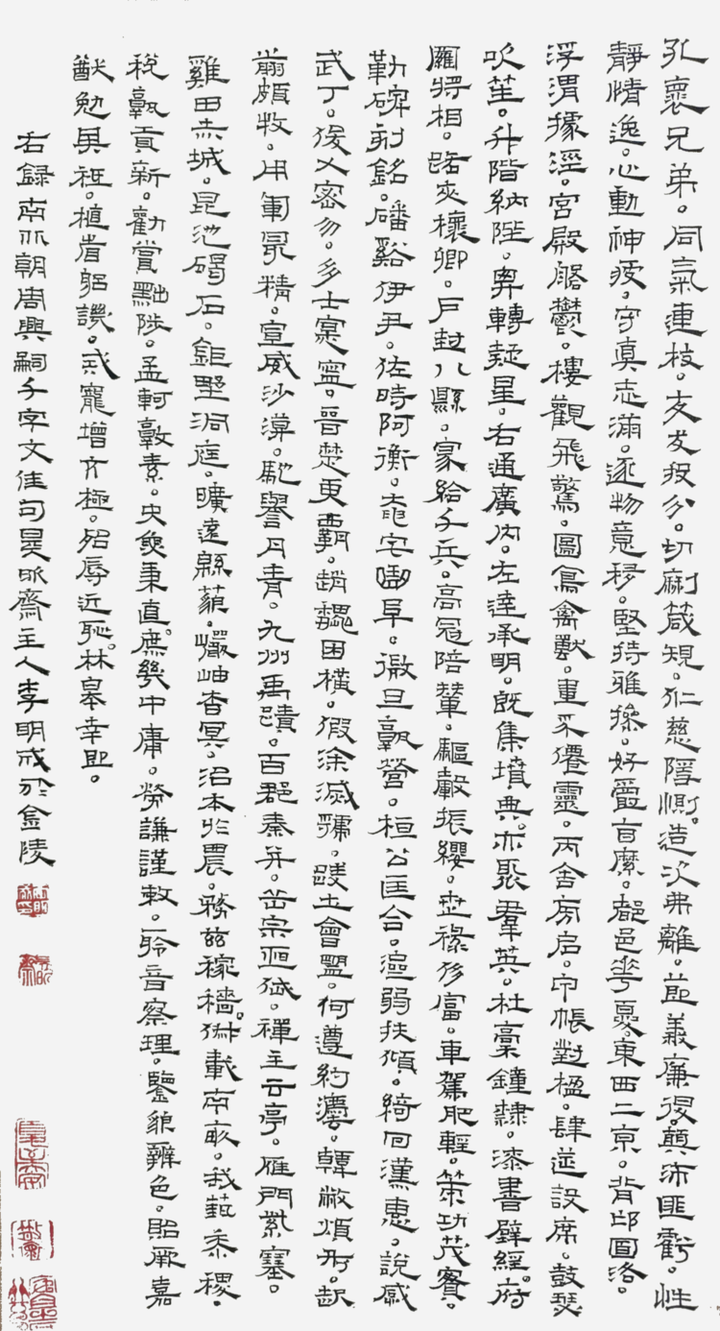 孔懷兄弟。同氣連枝。交友投分。切劘箴規。仁慈隱惻。造次弗離。節義廉退。顛沛匪虧。性
靜情逸。心動神疲。守真志滿。逐物意移。堅持雅操。好爵自縻。都邑華夏。東西二京。背邙面洛。
浮渭據涇。宮殿盤鬱。樓觀飛驚。圖寫禽獸。畫采僊靈。丙舍旁启。甲帳對楹。肆筵設席。鼓瑟
吹笙。升階納陛。弁轉疑星。右通廣內。左達承明。既集墳典。亦聚羣英。杜稾鍾隸。漆書壁經。府
羅將相。路夾槐卿。戶封八縣。家給千兵。高冠陪輦。驅轂振纓。世祿侈富。車駕肥輕。策功茂實。
勒碑刻銘。磻谿伊尹。佐時阿衡。奄宅曲阜。微旦孰營。桓公匡合。濟弱扶傾。綺回漢惠。說感
武丁。俊乂密勿。多士寔寧。晉楚更霸。趙魏困橫。假途滅虢。踐土會盟。何遵約法。韓弊煩刑。起
翦頗牧。用軍最精。宣威沙漠。馳譽丹青。九州禹蹟。百郡秦并。岳宗恆岱。禪主云亭。雁門紫塞。
雞田赤城。昆池碣石。鉅野洞庭。曠遠緜藐。巖岫杳冥。治本於農。務茲稼穡。俶載南畝。我蓺黍稷。
稅孰貢新。勸賞黜陟。孟軻敦素。史魚秉直。庶幾中庸。勞謙謹敕。聆音察理。鑒貌辨色。貽厥嘉
猷勉其祗。植省躬譏。戒寵增亢極。殆辱近恥。林皋幸即。
右錄南北朝周興嗣千字文佳句昊昕齋主人李明成於金陵